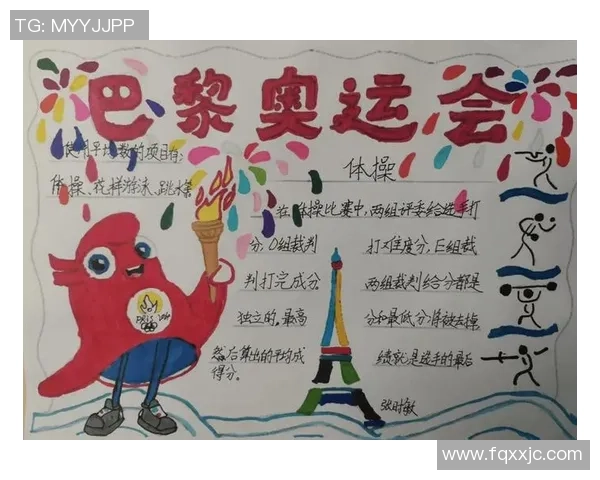 TG: MYYJJPP
巴黎奥运会
使用平均数的项目有:
体操、花样游泳、跳水等
体操
在体操比赛中,两组评委给选手打
分,D组裁判 打难度分,E组裁判
判打完成分 两组裁判给分都是
独立的,最高 分和最低分将被去掉
然后算出的平均成 绩就是选手的最后
得分。
张时敏
PARIS 2024
www.fqxxjc.com